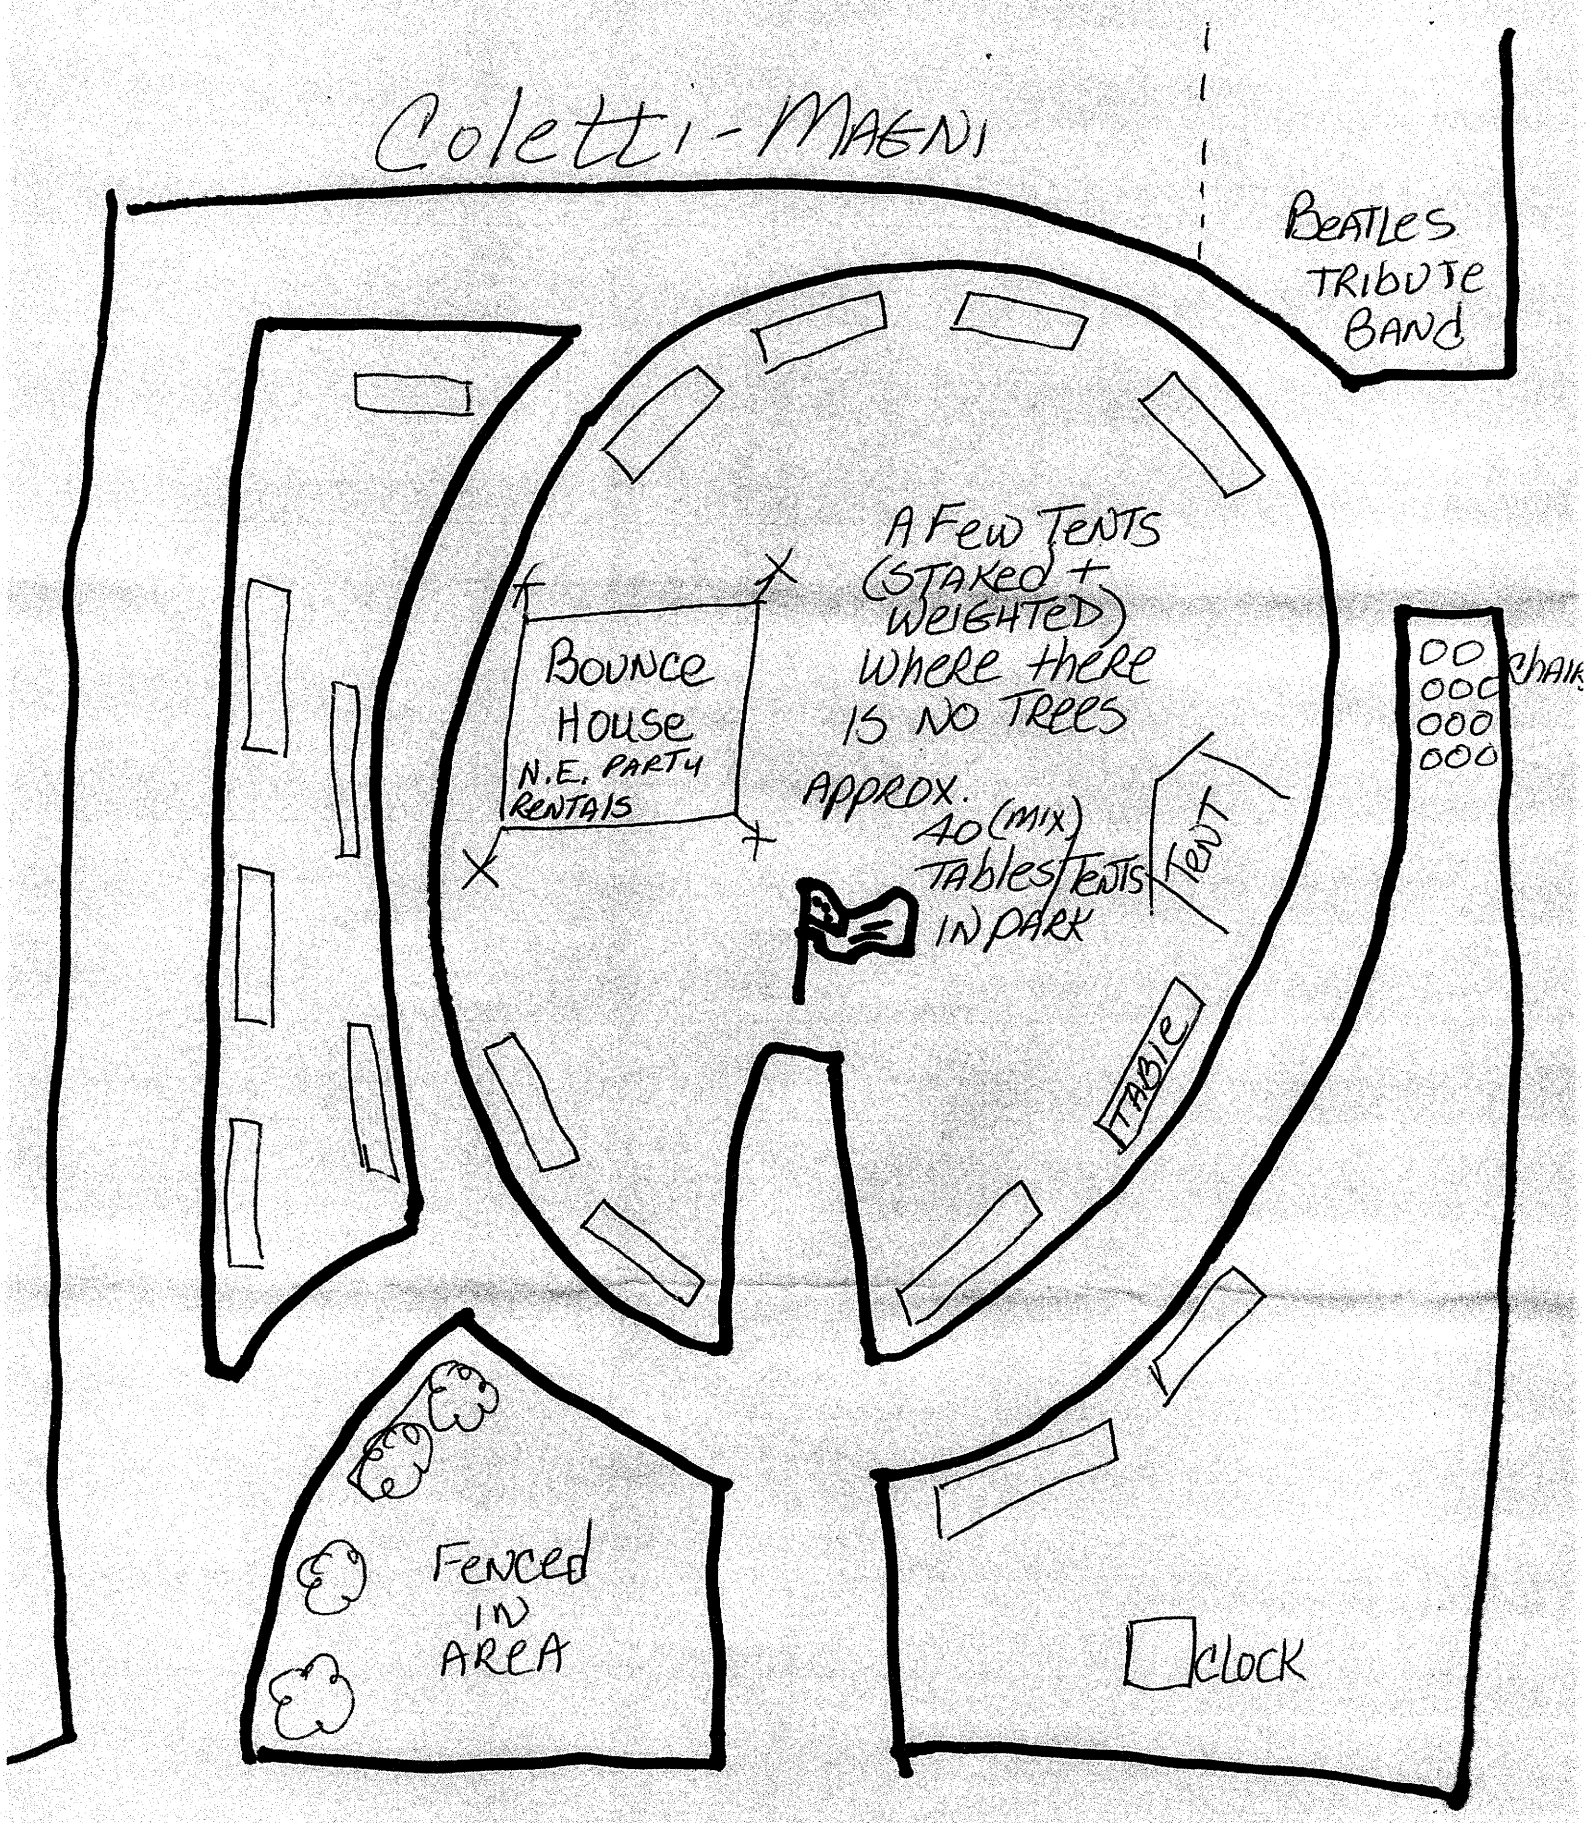 Coletti-MAGNI
BeATLes
TRIbUTe
BANd
A Few TeNTS
(STAKed +
WeIGHTeD)
Where there
IS NO TRees
BOUNce
HOUSe
N.E. PARTY
ReNTAlS
Approx.
40 (MIX)
TAbles/TeNTS
IN pARK
TeNT
ChAIRS
TABle
FeNCed
IN
AReA
CLOCK